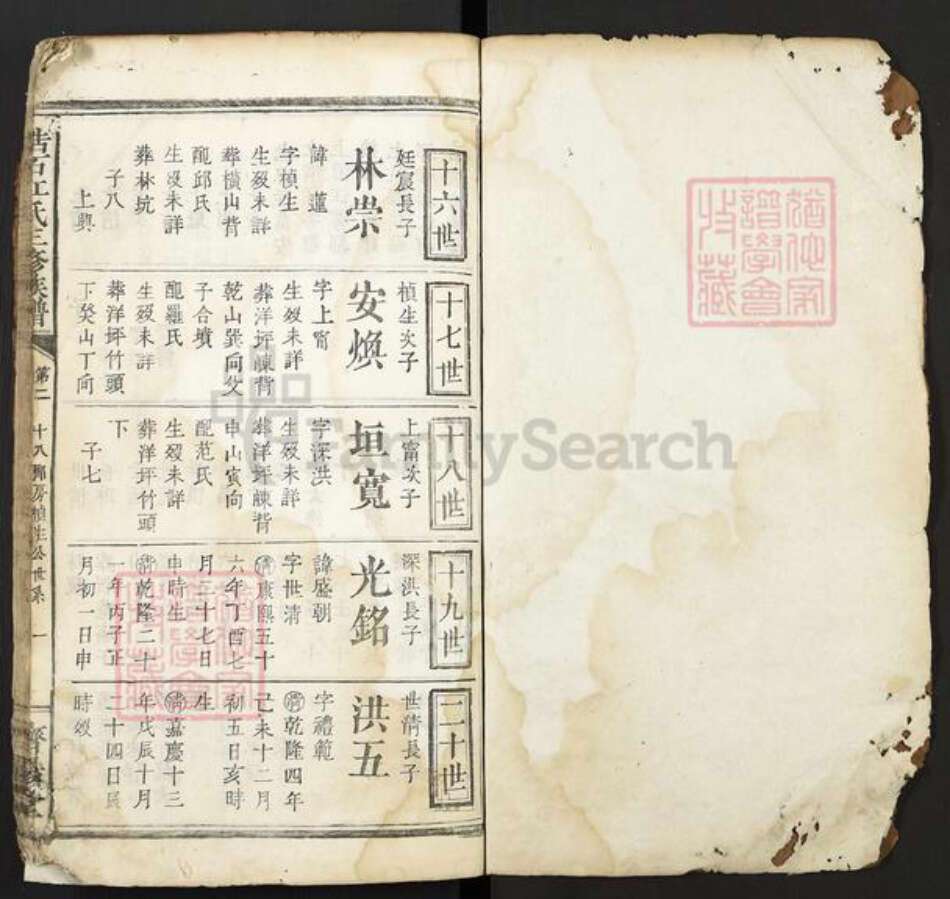 十六世
廷宸長子
林崇
諱蓮
字楨生
生歿未詳
葬横山背
配邱氏
生歿未詳
葬林坑
子八
上興
十七世
楨生次子
安煥
字上甯
生歿未詳
葬洋坪崠背
乾山巽向父
子合墳
配羅氏
生歿未詳
葬洋坪竹頭
下癸山丁向
十八世
上甯次子
垣寬
字深洪
生歿未詳
葬洋坪崠背
申山寅向
配范氏
生歿未詳
葬洋坪竹頭
下
子七
十九世
深洪長子
光銘
諱盛朝
字世清
清康熙五十
六年丁酉七
月二十七日
申時生
清乾隆二十
一年丙子正
月初一日申
二十世
世清長子
洪五
字禮範
清乾隆四年
己未十二月
初五日亥時
生
清嘉慶十三
年戊辰十月
二十四日辰
時歿
氏三修族譜
第二
十八郎房楨生公世系
一
猶他家
譜學會
收藏
猶他家
譜學會
收藏
FamilySearch